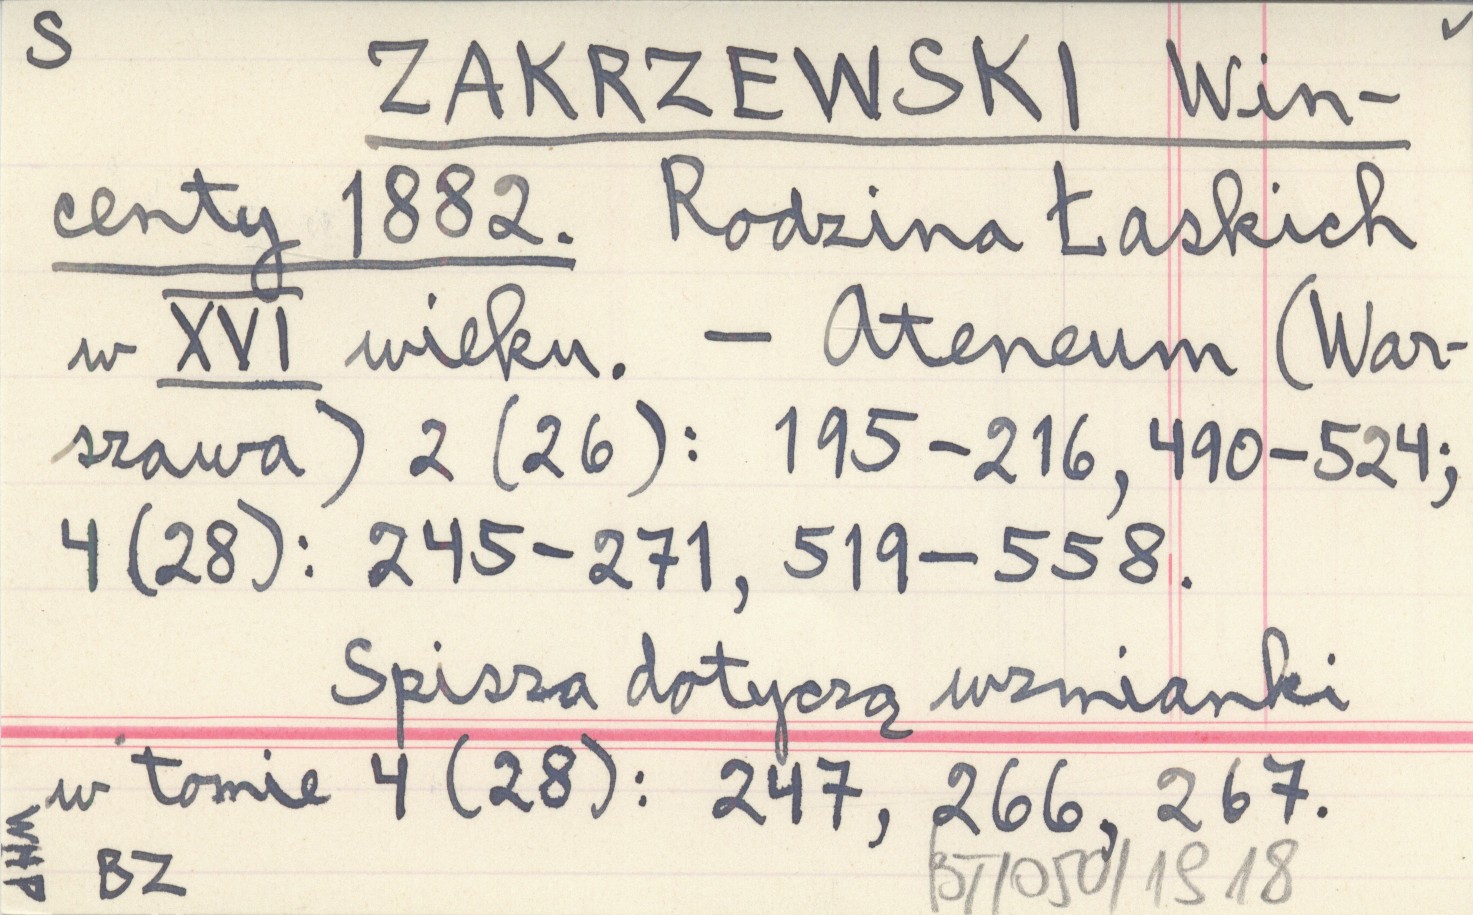 S
ZAKRZEWSKI Win-
centy 1882. Rodzina Łaskich
w XVI wieku. — Ateneum (War-
szawa) 2 (26): 195-216, 490-524;
4 (28): 245-271, 519-558.
Spisza dotyczą wzmianki
w tomie 4 (28): 247, 266, 267.
WHP
BZ
BT/050/1918